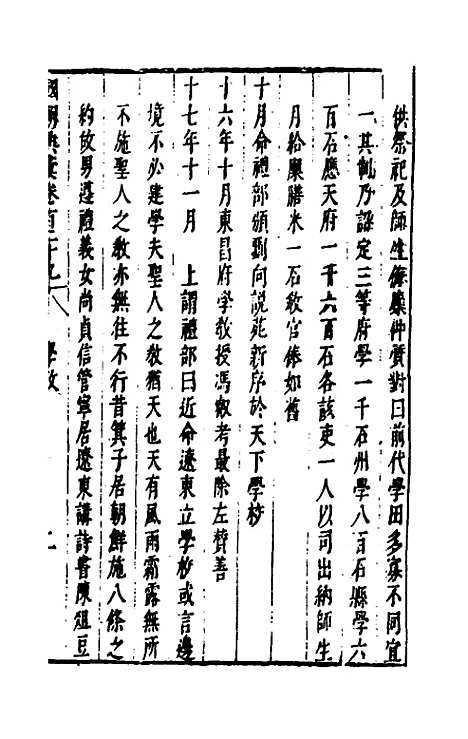 供祭祀及師生俸廩仲質對曰前代學田多寡不同宜
一其制乃詔定三等府學一千石州學八百石縣學六
百石應天府一千六百石各該吏一人以司出納師生
月給廩膳米一石敎官俸如舊
十月命禮部頒劉向說苑新序於天下學校
十六年十月東昌府學敎授馮叡考最除左贊善
十七年十一月　上謂禮部曰近命遼東立學校或言邊
境不必建學夫聖人之敎猶天也天有風雨霜露無所
不施聖人之敎亦無往不行昔箕子居朝鮮施八條之
約故男遵禮義女尚貞信管寧居遼東講詩書陳俎豆
國朝典彙卷百二十九　學政　二